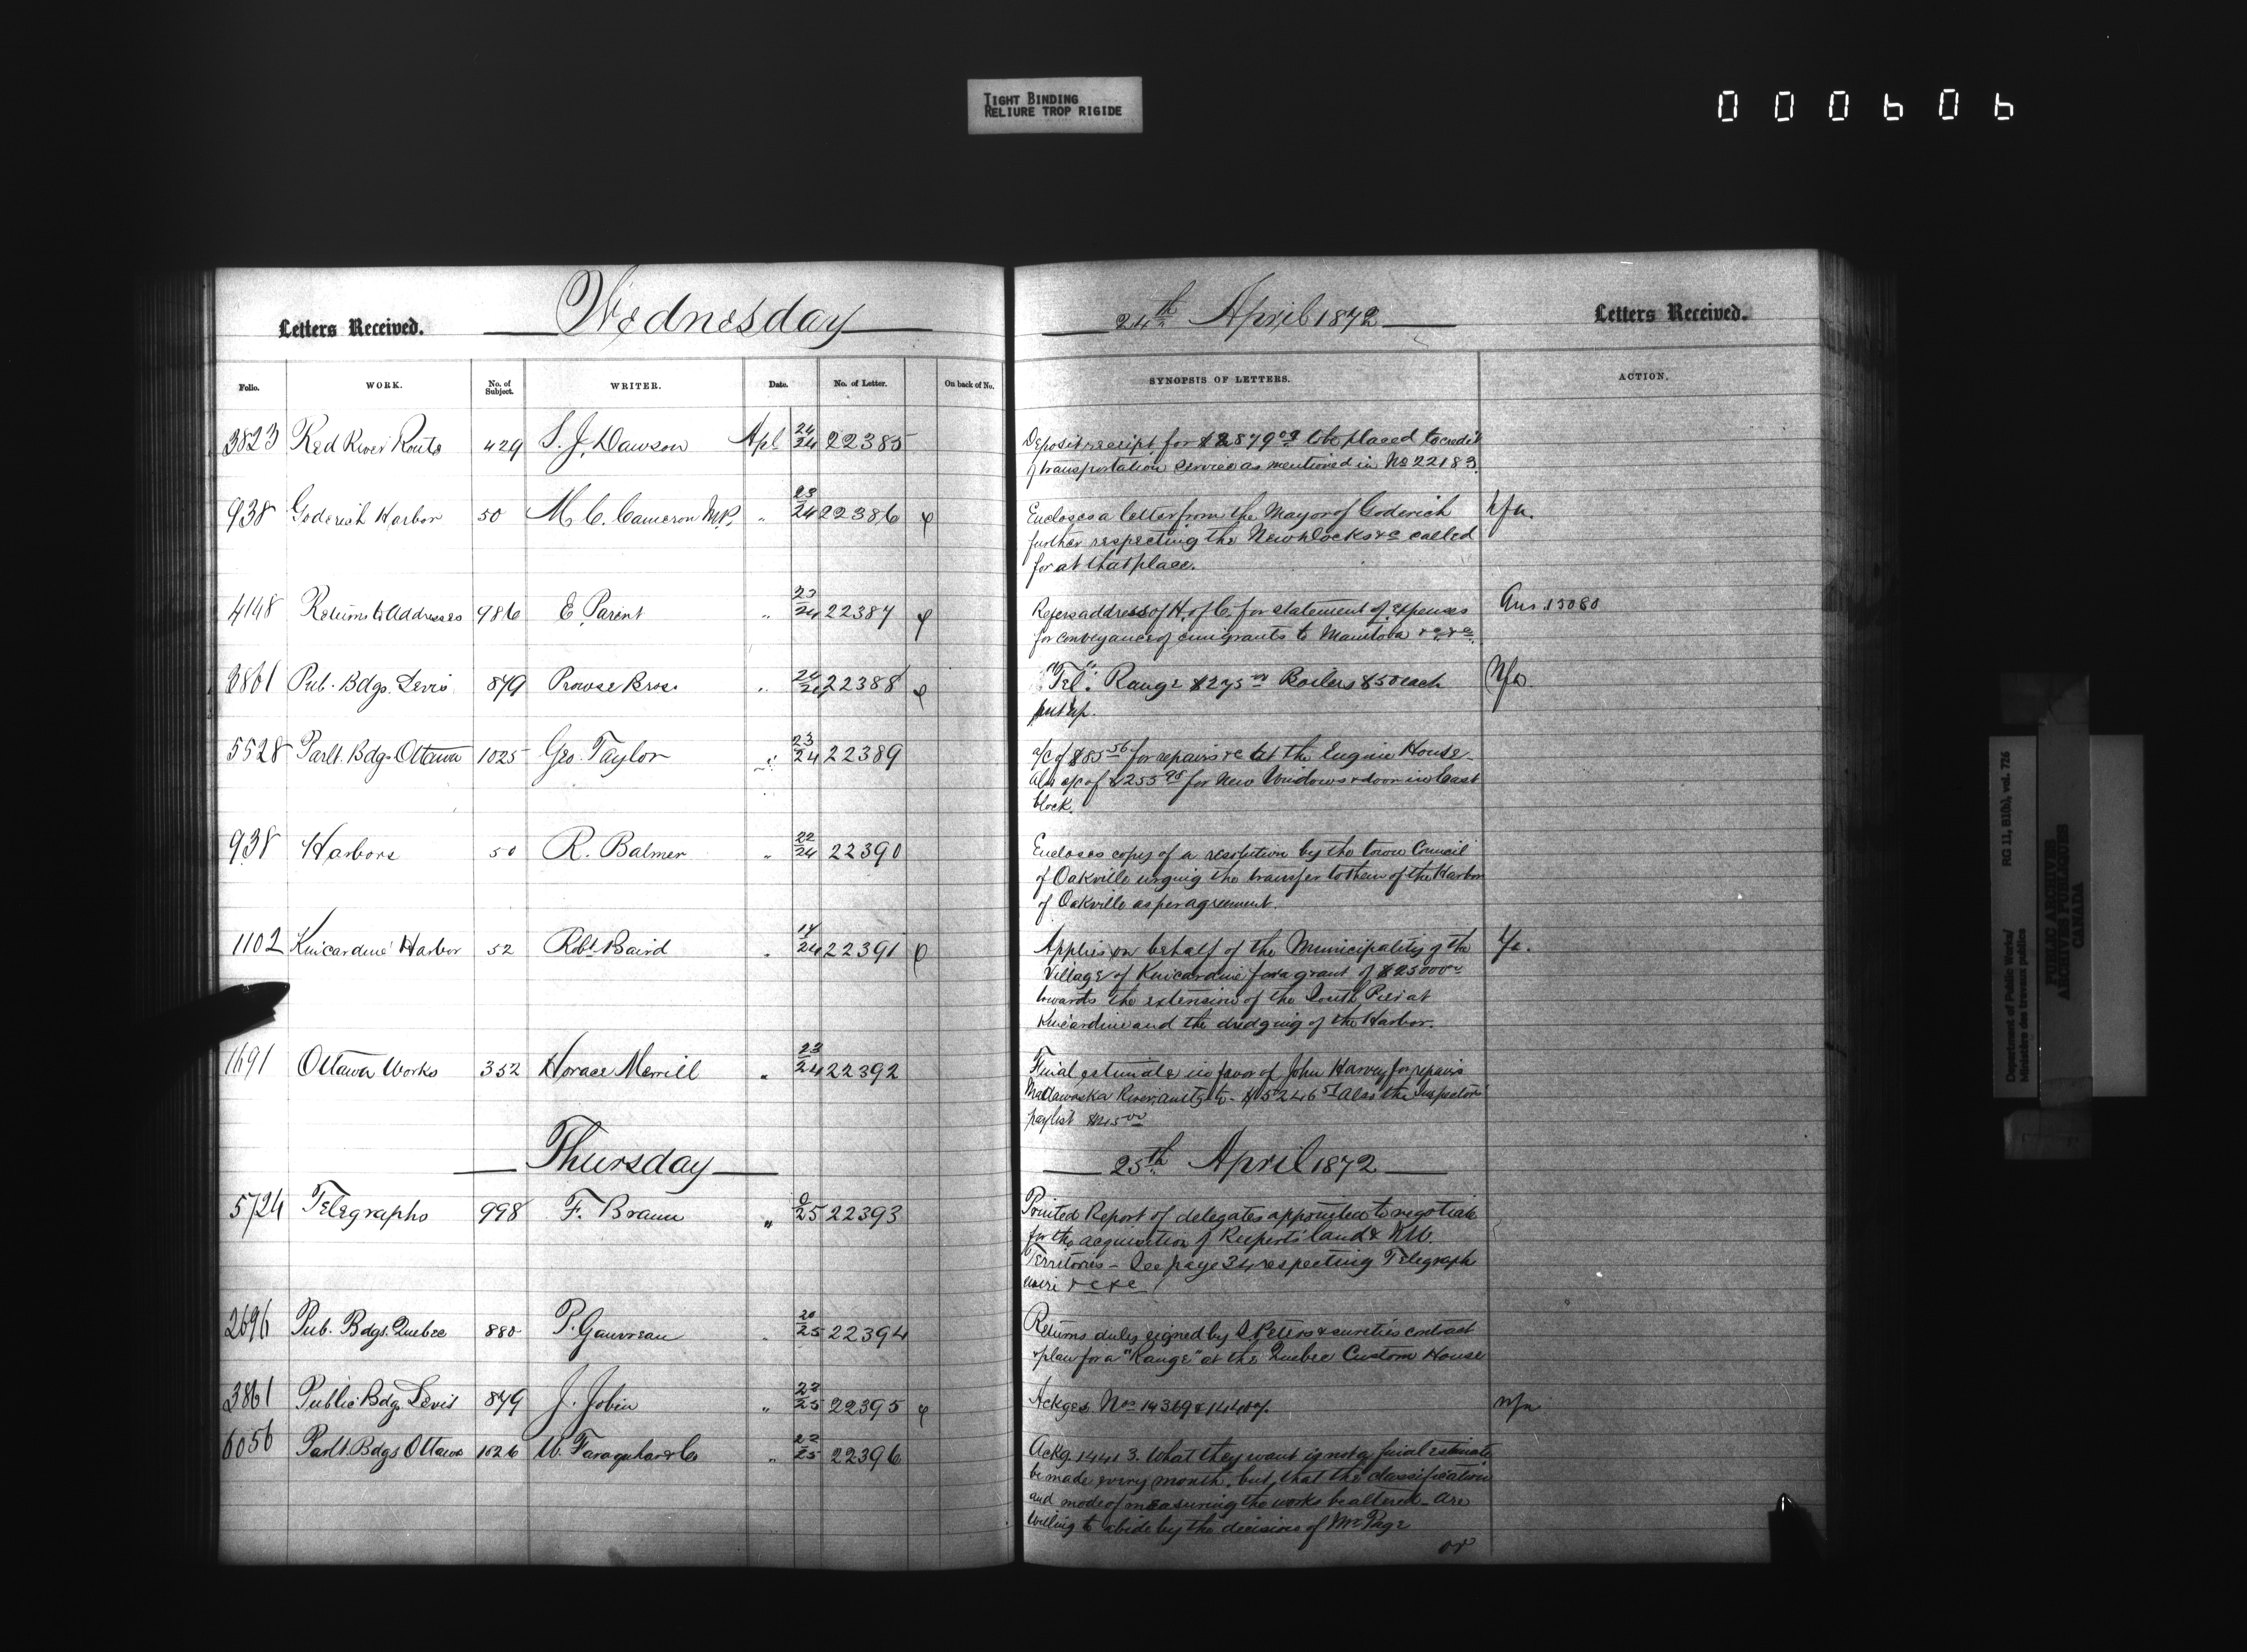 TIGHT BINDING
RELIURE TROP RIGIDE
000606
Letters Received. Wednesday 24th April 1872 Letters Received.
Folio. WORK. No. of Subject. WRITER. Date. No. of Letter. On back of No. SYNOPSIS OF LETTERS. ACTION.
3823 Red River Route 429 S. J. Dawson Apl 24/24 22385 Deposit receipt for $2879 09 to be placed to credit
of transportation service as mentioned in No 22183.
938 Goderich Harbor 50 M. C. Cameron M.P. " 23/24 22386 φ Encloses a letter from the Mayor of Goderich
further respecting the New docks &c called
for at that place.
4148 Returns to Addresses 986 E. Parent " 23/24 22387 φ Refers address of H. of C. for statement of expenses Ans. 15080
for conveyance of emigrants to Manitoba &c &c.
3861 Pub. Bdgs. Levis 879 Prowse Bros. " 24/24 22388 φ "Tel". Range $275 00 Boilers $50 each
put up.
5528 Parlt. Bdgs Ottawa 1025 Geo. Taylor " 23/24 22389 a/c of $85 56 for repairs &c at the Engine House
also a/c of $255 98 for New Windows & door in East
block.
938 Harbors 50 R. Balmer " 22/24 22390 Encloses copy of a resolution by the town Council
of Oakville urging the transfer to them of the Harbor
of Oakville as per agreement.
1102 Kincardine Harbor 52 Robt. Baird " 14/24 22391 φ Applies on behalf of the Municipality of the
Village of Kincardine for a grant of $25000 00
towards the extension of the South Pier at
Kincardine and the dredging of the Harbor.
1691 Ottawa Works 352 Horace Merrill " 23/24 22392 Final estimate in favor of John Harvey for repairs
Madawaska River, also the Inspectors
paylist $45 00
Thursday 25th April 1872
5724 Telegraphs 998 F. Braun " 25 22393 Printed Report of delegates appointed to negotiate
for the acquisition of Rupert's land & N.W.
Territories - See page 34 respecting Telegraph
wire &c &c
2696 Pub. Bdgs. Quebec 880 P. Gauvreau " 20/25 22394 Returns duly signed by S. Peters & sureties contract
& plan for a "Range" at the Quebec Custom House
3861 Public Bdgs Levis 879 J. Jobin " 23/25 22395 φ Ackges Nos 14369 &
6056 Parlt. Bdgs Ottawa 1026 W. Farquhar & Co " 22/25 22396 Ackg. 14413. What they want is not a final estimate
be made every month, but, that the classification
and mode of measuring the works be altered - are
willing to abide by the decision of Mr Page
or
Department of Public Works/
Ministère des travaux publics
RG 11, B1(b), vol. 726
PUBLIC ARCHIVES
ARCHIVES PUBLIQUES
CANADA